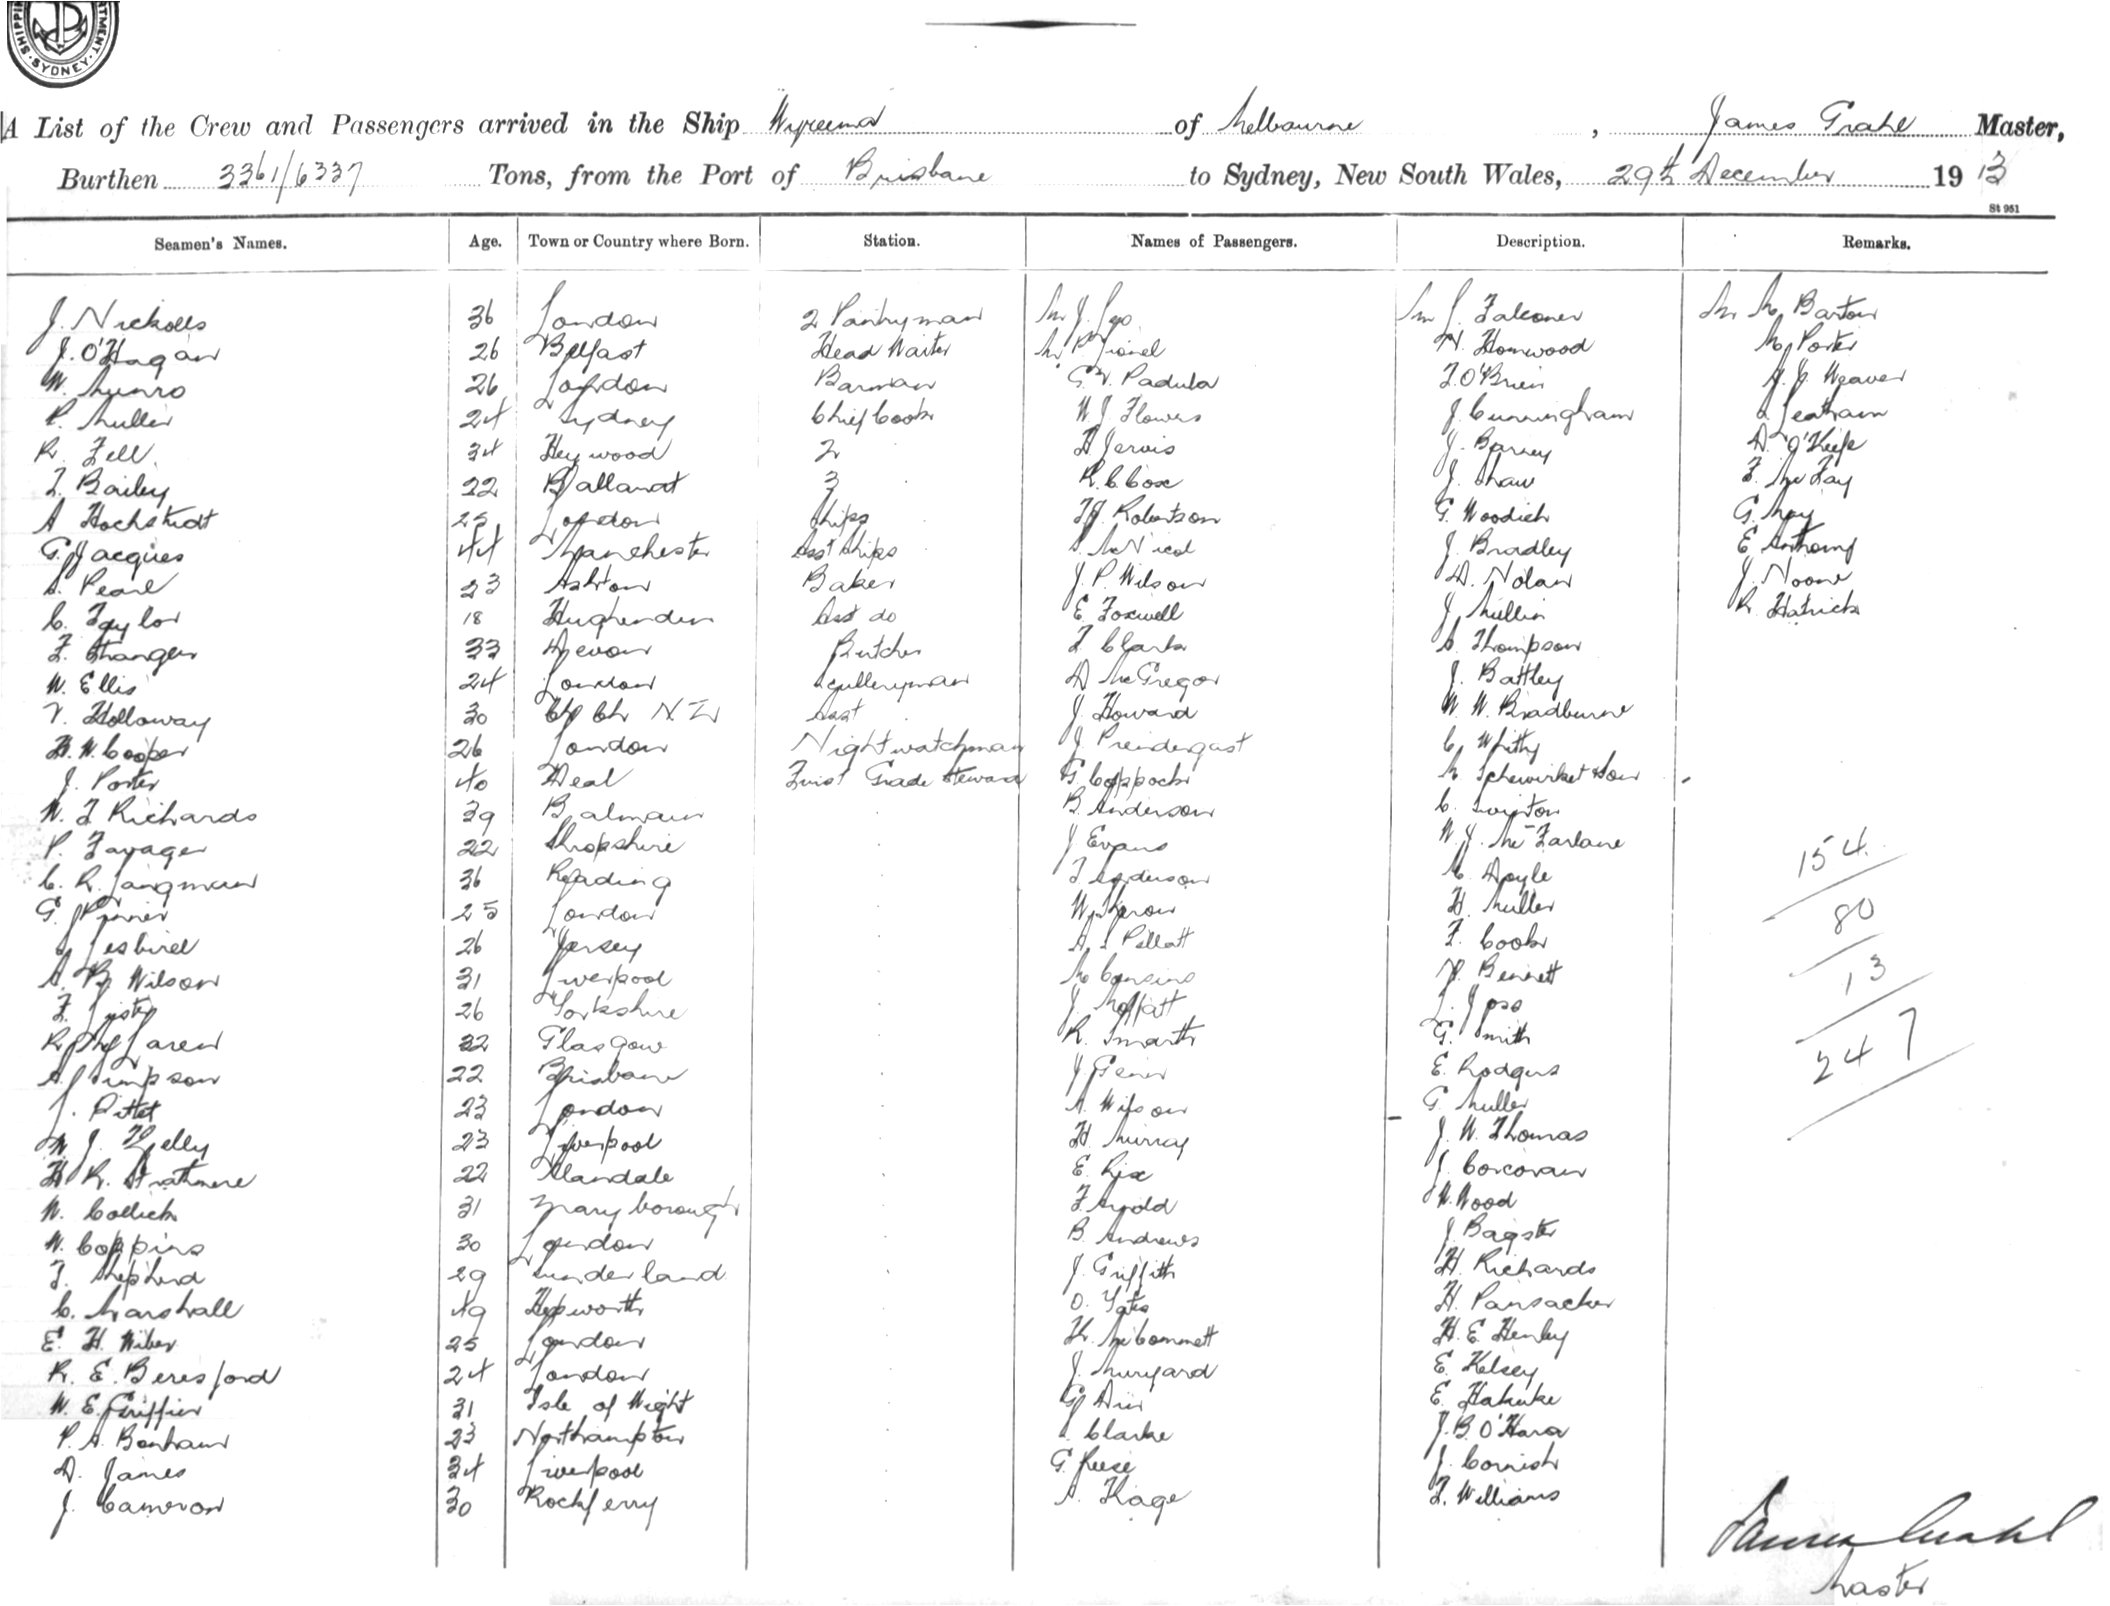 SHIPPIN RTMENT SYDNEY
A List of the Crew and Passengers arrived in the Ship Wyreema of Melbourne, James Grahl Master,
Burthen 3361/6337 Tons, from the Port of Brisbane to Sydney, New South Wales, 29th December 1913
St 951
Seamen's Names. Age. Town or Country where Born. Station. Names of Passengers. Description. Remarks.
J. Nickolls 36 London 2 Pantryman Mr J. Mr J. Falconer Mr M. Barton
J. O'Hagan 26 Belfast Head Waiter Mr P. Lionel H. Homwood M. Porter
W. Munro 26 London Barman G. V. Padula T. O'Brien A. J. Weaver
P. Muller 24 Sydney Chief Cook W J Flowers J. Cunningham L. Leatham
R. Fell. 34 Heywood 2 H Jervis J. Barney D. O'Keefe
T. Bailey 22 Ballarat 3 R. C Cox J. Shaw F. McFay
A Hochstadt 25 London Ships T J. Robertson G. Woodich G. May
G. Jacques 44 Manchester Asst Ships S. McNicol J. Bradley E. Anthony
S. Pearl 23 Ashton Baker J. P. Wilson D. Nolan J. Noone
C. Taylor 18 Hughenden Asst do E. Foxwell J. Mullin R. Hatrick
F. Stranger 33 Devon Butcher T. Clark S. Thompson
W. Ellis 24 London Sculleryman D McGregor J. Battley
V. Holloway 30 Ch Ch N. Z Asst J. Howard W. W. Bradburne
H. W. Cooper 26 London Nightwatchman J. Preindergast C. Whitty
J. Porter 40 Deal First Grade Steward G. Coppock
W. T Richards 39 Balmain B. Anderson C. Swinton
P. Favager 22 Shropshire J Evans W. J. McFarlane
C. R. Langman 36 Reading T Anderson C. Doyle
G. 25 London W. H. Muller
26 Jersey A. Pellatt F. Cook
A. B. Wilson 31 Liverpool M Cousins H. Bennett
F. Lister 26 Yorkshire J. Moffatt L. Joss
R. McLaren 32 Glasgow R. Smart G. Smith
A. Simpson 22 Brisbane J E. Rodgers
L. Pittet 23 London A. Wilson G. Muller
M J. Kelly 23 Liverpool H. Murray J. W. Thomas
H R. Strathmere 22 Alandale E. Rix J. Corcoran
W. Collick 31 Maryborough F. Arnold W. Wood
W. Coppins 30 London B. Andrews J. Bagster
F. Shepherd 29 Sunderland J. Griffith H. Richards
C. Marshall 49 Hepworth O. Yates H. Pansacker
E. H. Wiber 25 London H. E. Henley
R. E. Beresford 24 London J. E. Kelsey
W. E. Griffier 31 Isle of Wight G. E. Hahnke
P. A. Bonham 23 Northampton L. Clarke J. B. O'Hara
D. James 34 Liverpool G. Reese J. Cornish
J. Cameron 30 Rockferry A. Hage T. Williams
154
80
13
247
James Grahl
Master